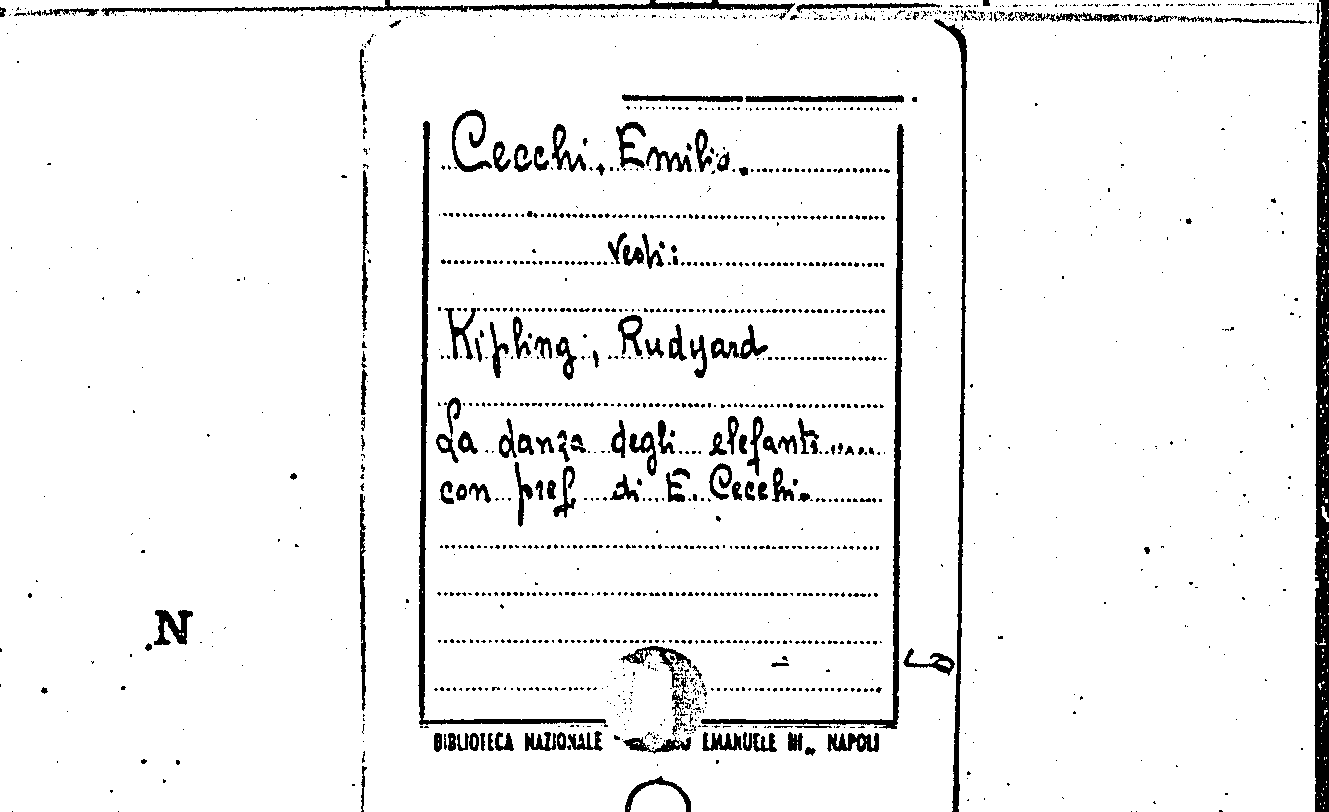 Cecchi, Emilio.
Vedi:
Kipling, Rudyard
La danza degli elefanti.....
con pref. di E. Cecchi.
N
BIBLIOTECA NAZIONALE EMANUELE III„ NAPOLI